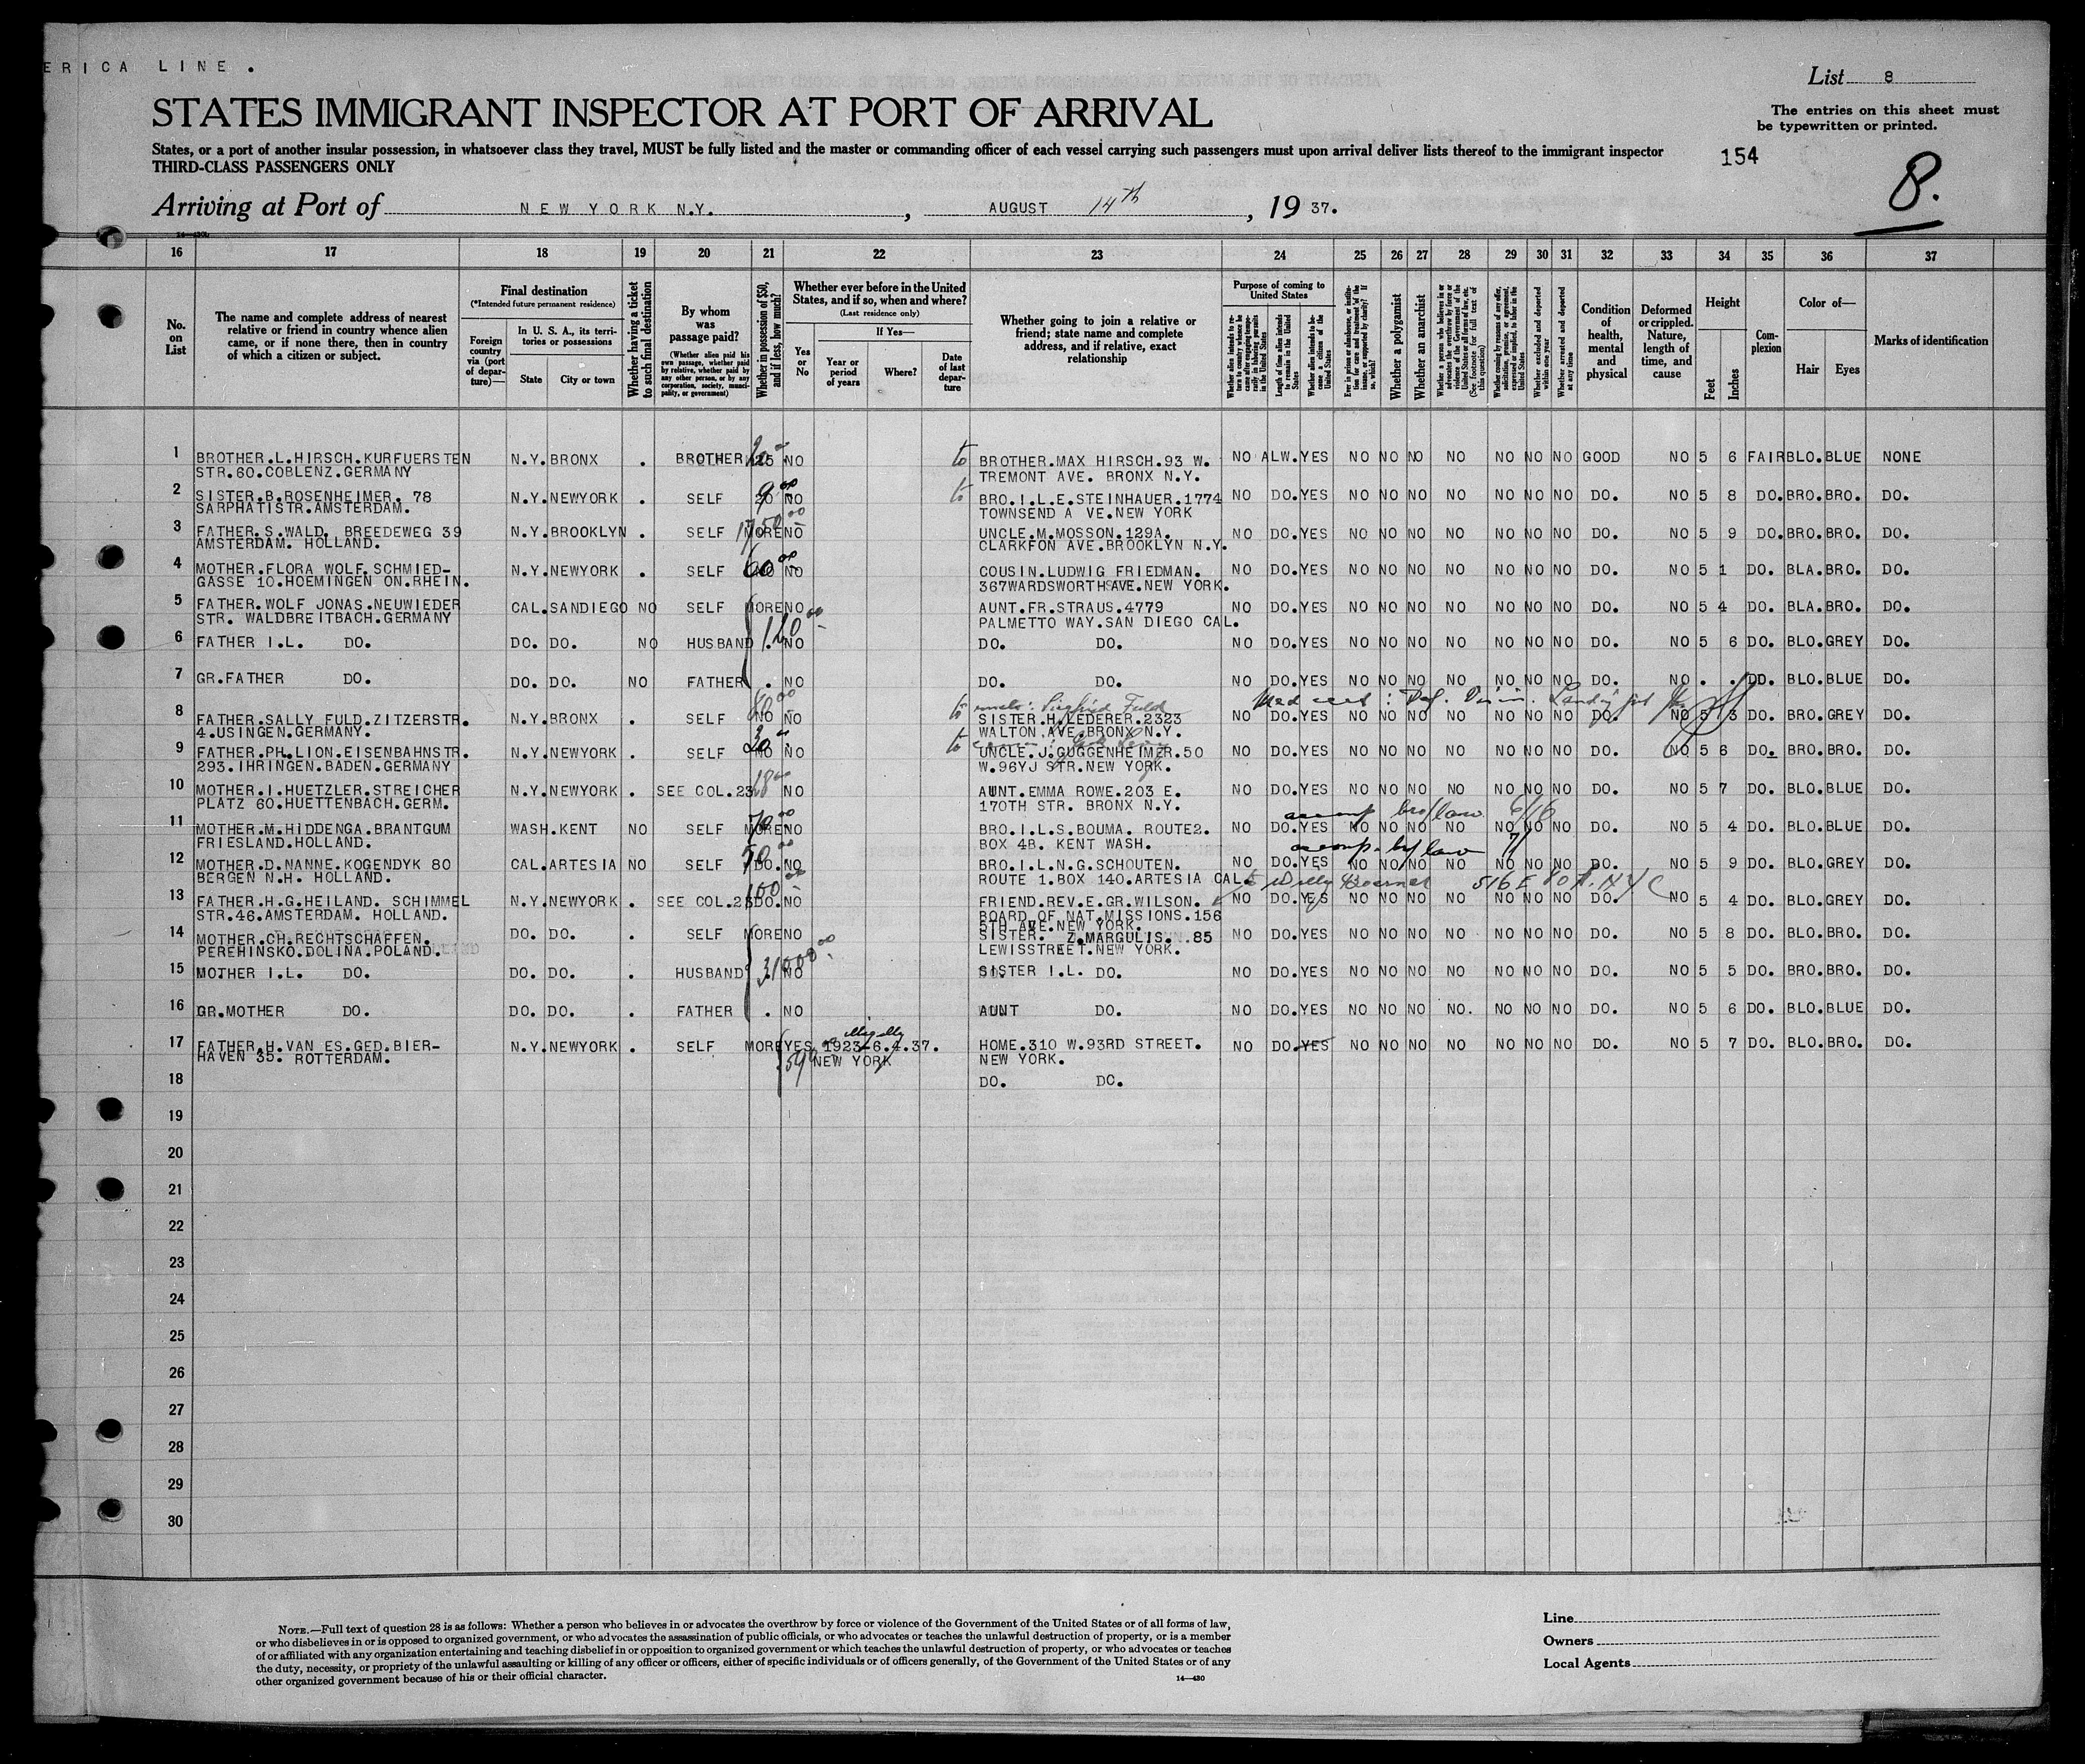 ERICA LINE.
List 8
STATES IMMIGRANT INSPECTOR AT PORT OF ARRIVAL
The entries on this sheet must
be typewritten or printed.
States, or a port of another insular possession, in whatsoever class they travel, MUST be fully listed and the master or commanding officer of each vessel carrying such passengers must upon arrival deliver lists thereof to the immigrant inspector
THIRD-CLASS PASSENGERS ONLY
154
8.
Arriving at Port of NEW YORK N.Y., AUGUST 14th, 1937.
16 17 18 19 20 21 22 23 24 25 26 27 28 29 30 31 32 33 34 35 36 37
No. on List
The name and complete address of nearest relative or friend in country whence alien came, or if none there, then in country of which a citizen or subject.
Final destination
(*Intended future permanent residence)
Foreign country via (port of departure)—
In U. S. A., its territories or possessions
State
City or town
Whether having a ticket to such final destination
By whom was passage paid?
(Whether alien paid his own passage, whether paid by relative, whether paid by any other person, or by any corporation, society, municipality, or government)
Whether in possession of $50, and if less, how much?
Whether ever before in the United States, and if so, when and where?
(Last residence only)
Yes or No
If Yes—
Year or period of years
Where?
Date of last departure
Whether going to join a relative or friend; state name and complete address, and if relative, exact relationship
Purpose of coming to United States
Length of time alien intends to remain in the United States
Whether alien intends to become a citizen of the United States
Whether a polygamist
Whether an anarchist
Whether excluded and deported within one year
Whether arrested and deported at any time
Condition of health, mental and physical
Deformed or crippled. Nature, length of time, and cause
Height
Feet
Inches
Complexion
Color of—
Hair
Eyes
Marks of identification
1 BROTHER.L.HIRSCH.KURFUERSTEN N.Y. BRONX . BROTHER NO to BROTHER.MAX HIRSCH.93 W. NO ALW. YES NO NO NO NO NO NO NO GOOD NO 5 6 FAIR BLO. BLUE NONE
STR.60.COBLENZ.GERMANY TREMONT AVE. BRONX N.Y.
2 SISTER.B.ROSENHEIMER. 78 N.Y. NEWYORK . SELF NO to BRO.I.L.E.STEINHAUER.1774 NO DO. YES NO NO NO NO NO NO NO DO. NO 5 8 DO. BRO. BRO. DO.
SARPHATISTR.AMSTERDAM. TOWNSEND A VE.NEW YORK
3 FATHER.S.WALD. BREEDEWEG 39 N.Y. BROOKLYN . SELF MORE NO UNCLE.M.MOSSON.129A. NO DO. YES NO NO NO NO NO NO NO DO. NO 5 9 DO. BRO. BRO. DO.
AMSTERDAM. HOLLAND. CLARKFON AVE.BROOKLYN N.Y.
4 MOTHER.FLORA WOLF.SCHMIED- N.Y. NEWYORK . SELF 60 NO COUSIN.LUDWIG FRIEDMAN. NO DO. YES NO NO NO NO NO NO NO DO. NO 5 1 DO. BLA. BRO. DO.
GASSE 10.HOEMINGEN ON.RHEIN. 367WARDSWORTH AVE.NEW YORK.
5 FATHER.WOLF JONAS.NEUWIEDER CAL. SANDIEGO NO SELF MORE NO AUNT.FR.STRAUS.4779 NO DO. YES NO NO NO NO NO NO NO DO. NO 5 4 DO. BLA. BRO. DO.
STR. WALDBREITBACH.GERMANY PALMETTO WAY.SAN DIEGO CAL.
6 FATHER I.L. DO. DO. DO. NO HUSBAND . NO DO. DO. NO DO. YES NO NO NO NO NO NO NO DO. NO 5 6 DO. BLO. GREY DO.
7 GR.FATHER DO. DO. DO. NO FATHER . NO DO. DO. NO DO. YES NO NO NO NO NO NO NO DO. NO . . DO. BLO. BLUE DO.
to uncle: Siegfried Fuld
8 FATHER.SALLY FULD.ZITZERSTR. N.Y. BRONX . SELF NO NO SISTER.H.LEDERER.2323 NO DO. YES NO NO NO NO NO NO NO DO. NO 5 3 DO. BRO. GREY DO.
4.USINGEN.GERMANY. WALTON AVE.BRONX N.Y.
9 FATHER.PH.LION.EISENBAHNSTR. N.Y. NEWYORK . SELF NO to UNCLE.J.GUGGENHEIMER.50 NO DO. YES NO NO NO NO NO NO NO DO. NO 5 6 DO. BRO. BRO. DO.
293.IHRINGEN.BADEN.GERMANY W.96YJ STR.NEW YORK.
10 MOTHER.I.HUETZLER.STREICHER N.Y. NEWYORK . SEE COL.23 NO AUNT.EMMA ROWE.203 E. NO DO. YES NO NO NO NO NO NO NO DO. NO 5 7 DO. BLO. BLUE DO.
PLATZ 60.HUETTENBACH.GERM. 170TH STR. BRONX N.Y.
accomp bro/law
11 MOTHER.M.HIDDENGA.BRANTGUM WASH. KENT NO SELF MORE NO BRO.I.L.S.BOUMA. ROUTE2. NO DO. YES NO NO NO NO NO NO NO DO. NO 5 4 DO. BLO. BLUE DO.
FRIESLAND.HOLLAND. BOX 4B. KENT WASH.
12 MOTHER.D.NANNE.KOGENDYK 80 CAL. ARTESIA NO SELF DO. NO BRO.I.L.N.G.SCHOUTEN. NO DO. YES NO NO NO NO NO NO NO DO. NO 5 9 DO. BLO. GREY DO.
BERGEN N.H. HOLLAND. ROUTE 1.BOX 140.ARTESIA CAL.
13 FATHER.H.G.HEILAND. SCHIMMEL N.Y. NEWYORK . SEE COL.23 DO. NO FRIEND.REV.E.GR.WILSON. NO DO. YES NO NO NO NO NO NO NO DO. NO 5 4 DO. BLO. GREY DO.
STR.46.AMSTERDAM. HOLLAND. BOARD OF NAT.MISSIONS.156
5TH AVE.NEW YORK.
14 MOTHER.CH.RECHTSCHAFFEN. DO. DO. . SELF MORE NO SISTER. Z.MARGULIS. .85 NO DO. YES NO NO NO NO NO NO NO DO. NO 5 8 DO. BLO. BRO. DO.
PEREHINSKO.DOLINA.POLAND. LEWISSTREET.NEW YORK.
15 MOTHER I.L. DO. DO. DO. . HUSBAND . NO SISTER I.L. DO. NO DO. YES NO NO NO NO NO NO NO DO. NO 5 5 DO. BRO. BRO. DO.
16 GR.MOTHER DO. DO. DO. . FATHER . NO AUNT DO. NO DO. YES NO NO NO NO. NO NO NO DO. NO 5 6 DO. BLO. BLUE DO.
17 FATHER.H.VAN ES.GED.BIER- N.Y. NEWYORK . SELF MORE YES. 1923-6.4.37. HOME.310 W.93RD STREET. NO DO. YES NO NO NO NO NO NO NO DO. NO 5 7 DO. BLO. BRO. DO.
HAVEN 35. ROTTERDAM. NEW YORK NEW YORK.
18 DO. DO.
19
20
21
22
23
24
25
26
27
28
29
30
NOTE.—Full text of question 28 is as follows: Whether a person who believes in or advocates the overthrow by force or violence of the Government of the United States or of all forms of law,
or who disbelieves in or is opposed to organized government, or who advocates the assassination of public officials, or who advocates or teaches the unlawful destruction of property, or is a member
of or affiliated with any organization entertaining and teaching disbelief in or opposition to organized government or which teaches the unlawful destruction of property, or who advocates or teaches
the duty, necessity, or propriety of the unlawful assaulting or killing of any officer or officers, either of specific individuals or of officers generally, of the Government of the United States or of any
other organized government because of his or their official character.
14—430
Line
Owners
Local Agents